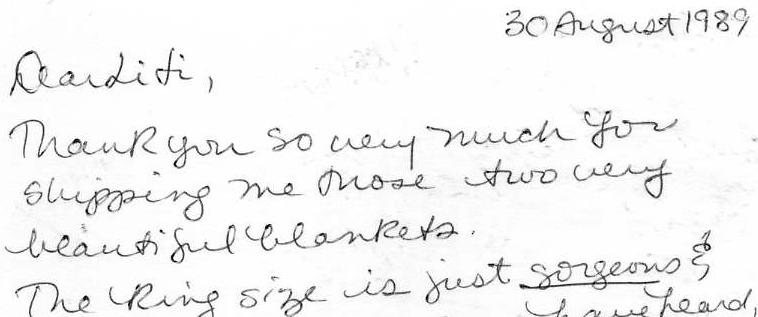 30 August 1989
Dear Liti,
Thank you so very much for
shipping me those two very
beautiful blankets.
The King size is just gorgeous &
have heard,